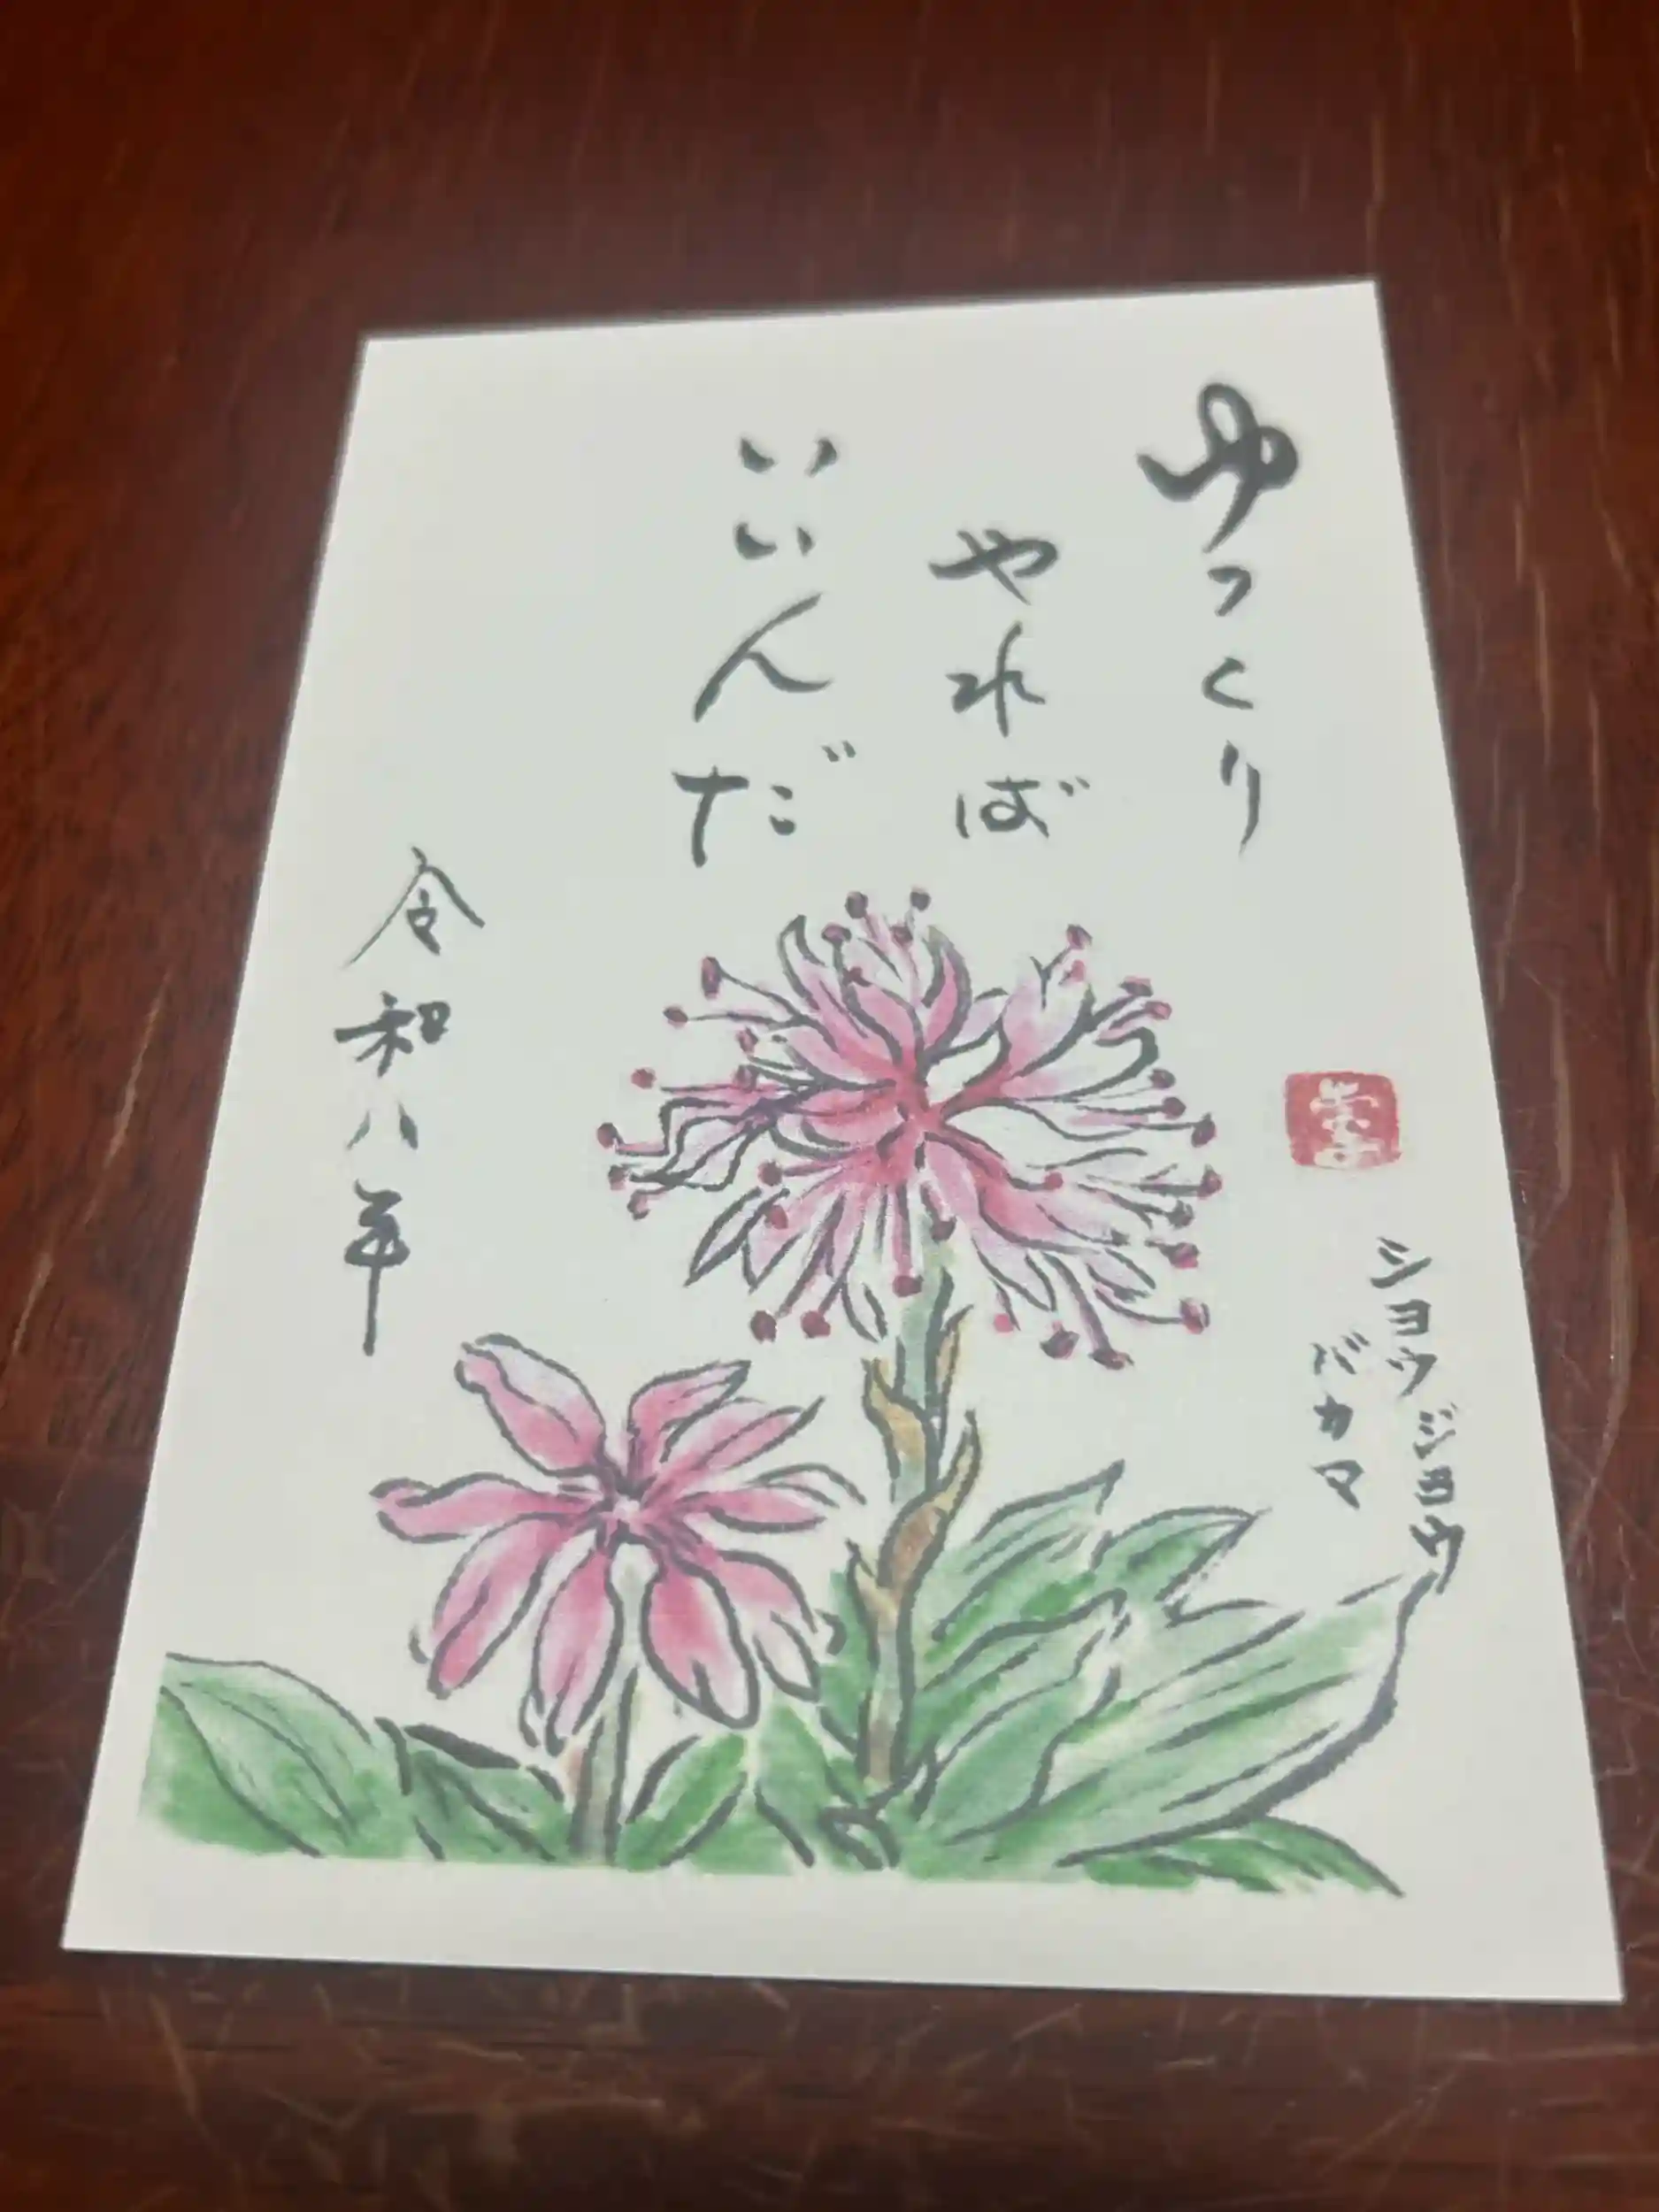 ゆっくり
やれば
いいんだ
令和八年
ショウジョウ
バカマ